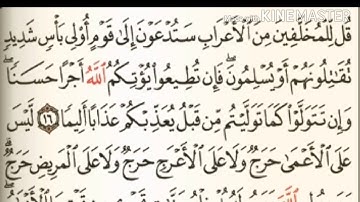 KINEMASTER
قُل لِّلْمُخَلَّفِينَ مِنَ ٱلْأَعْرَابِ سَتُدْعَوْنَ إِلَىٰ قَوْمٍ أُو۟لِى بَأْسٍ شَدِيدٍ
تُقَـٰتِلُونَهُمْ أَوْ يُسْلِمُونَ ۖ فَإِن تُطِيعُوا۟ يُؤْتِكُمُ ٱللَّهُ أَجْرًا حَسَنًا ۖ
وَإِن تَتَوَلَّوْا۟ كَمَا تَوَلَّيْتُم مِّن قَبْلُ يُعَذِّبْكُمْ عَذَابًا أَلِيمًا ١٦ لَّيْسَ
عَلَى ٱلْأَعْمَىٰ حَرَجٌ وَلَا عَلَى ٱلْأَعْرَجِ حَرَجٌ وَلَا عَلَى ٱلْمَرِيضِ حَرَجٌ ۗ
ٱللَّهَ